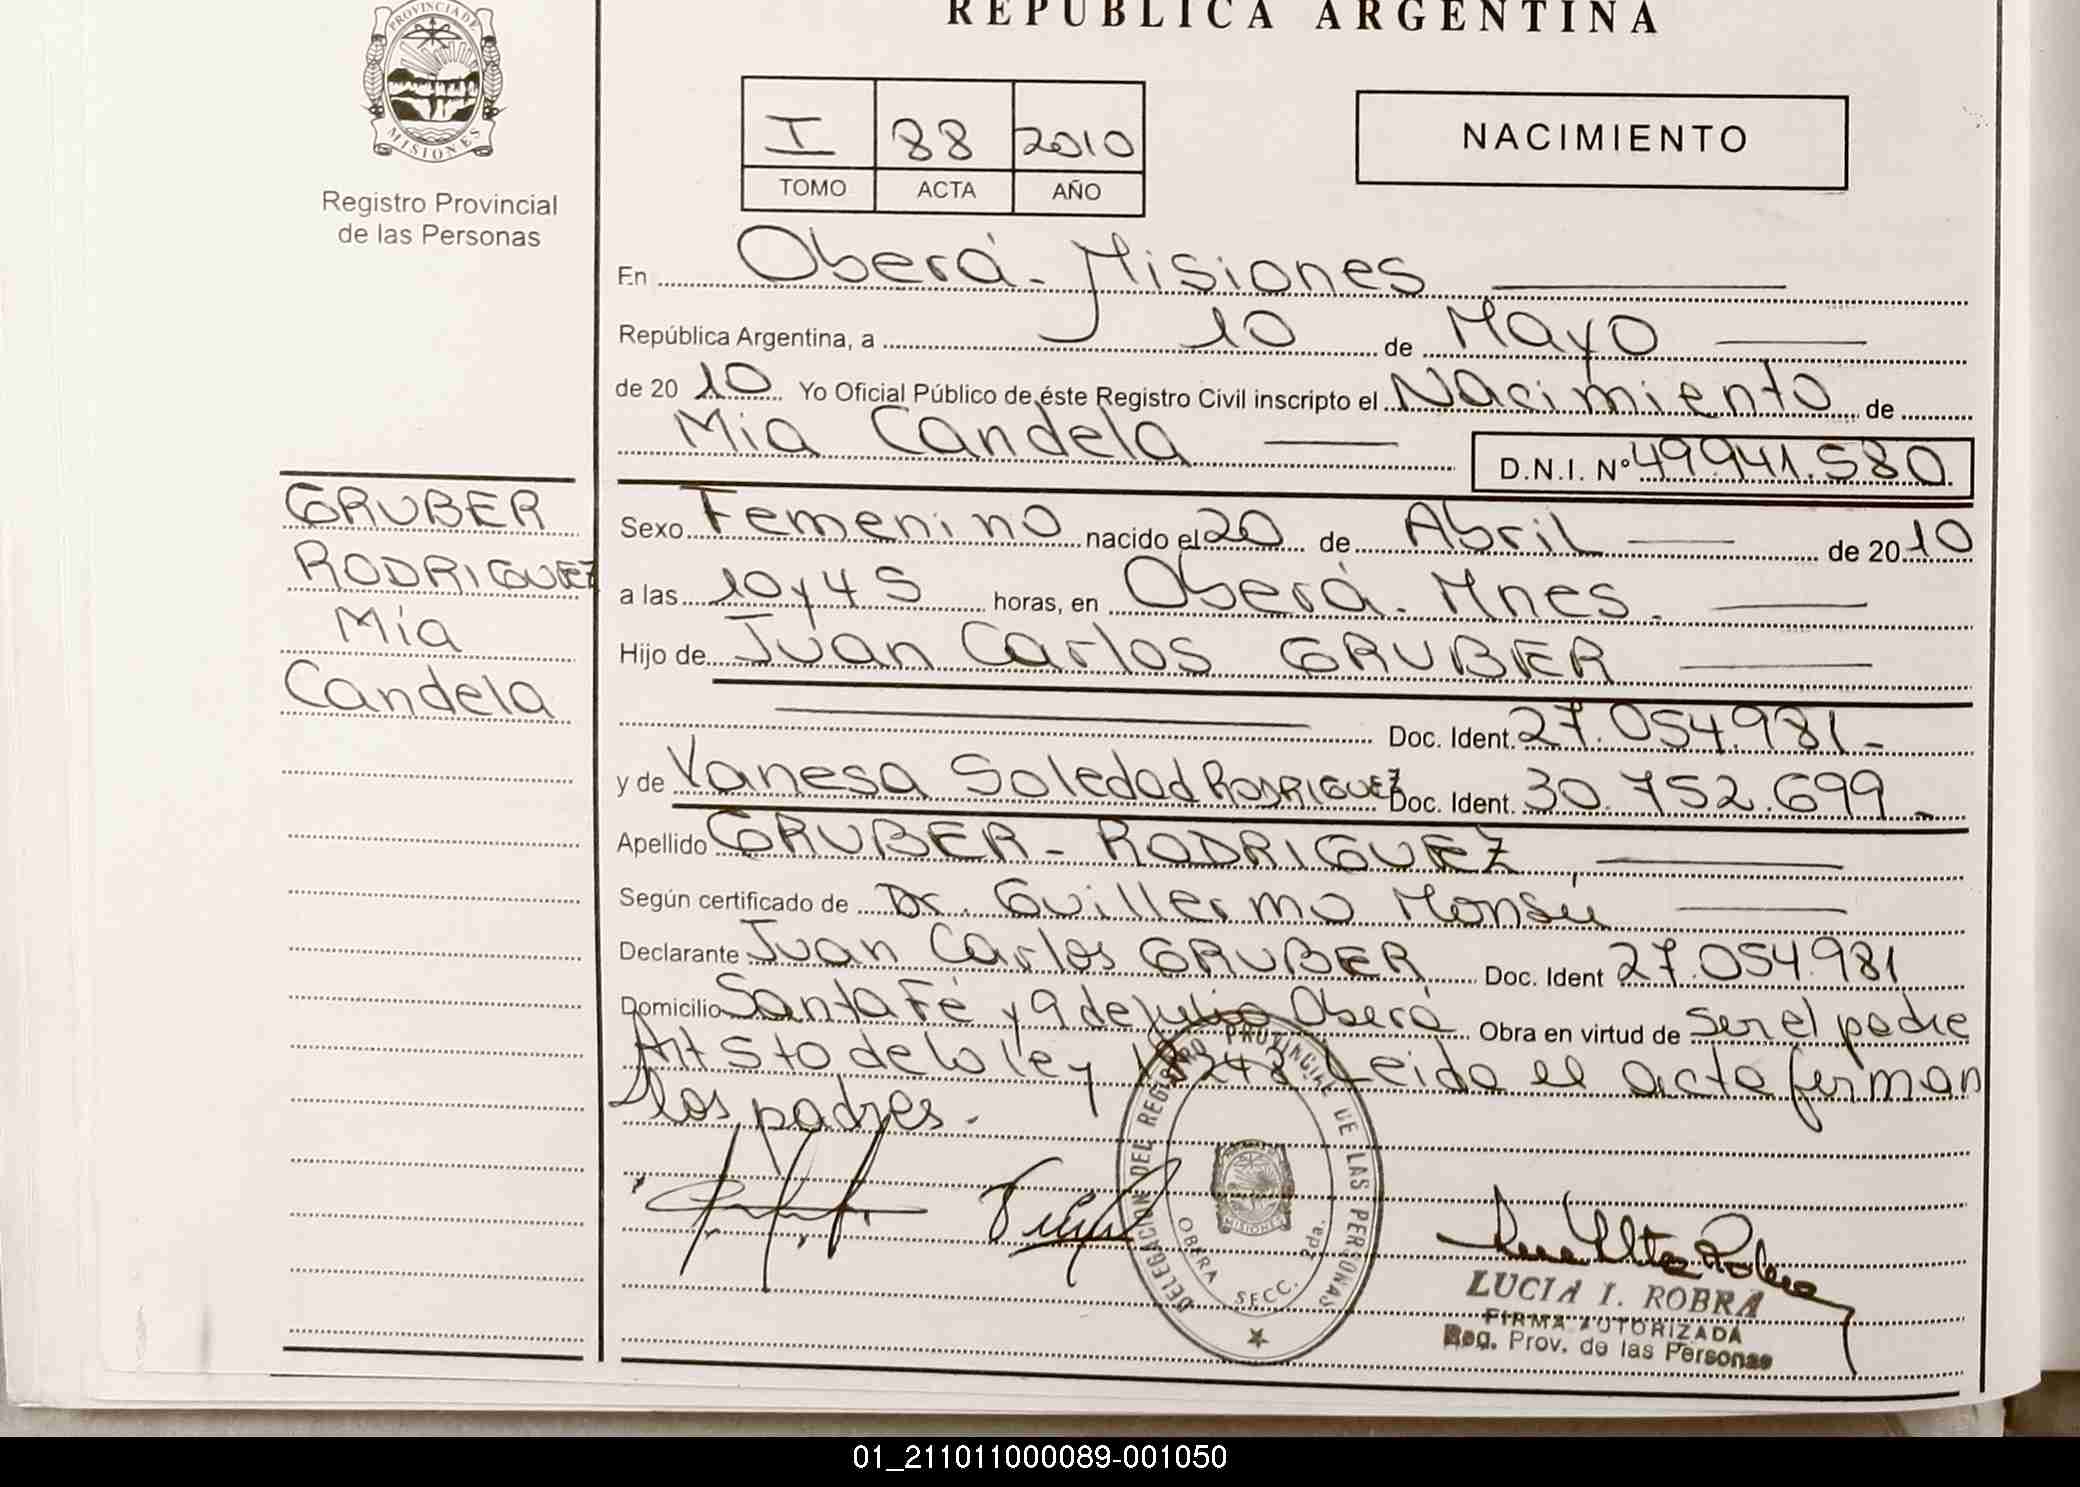 REPUBLICA ARGENTINA
PROVINCIA DE
MISIONES
Registro Provincial
de las Personas
I 88 2010
TOMO ACTA AÑO
NACIMIENTO
En Oberá - Misiones
República Argentina, a 10 de Mayo
de 20 10 Yo Oficial Público de éste Registro Civil inscripto el Nacimiento de
Mia Candela D.N.I. N° 49.941.580
GRUBER
RODRIGUEZ
Mía
Candela
Sexo Femenino nacido el 20 de Abril de 20 10
a las 10 y 45 horas, en Oberá - Mnes.
Hijo de Juan Carlos GRUBER
Doc. Ident. 27.054.981-
y de Vanesa Soledad RODRIGUEZ Doc. Ident. 30.752.699-
Apellido GRUBER - RODRIGUEZ
Según certificado de Dr. Guillermo Monsú
Declarante Juan Carlos GRUBER Doc. Ident 27.054.981
Domicilio Santa Fé y 9 de Julio Oberá Obra en virtud de ser el padre
Art 5to de la ley 18248 Leida el acta firman
los padres.
DELEGACION DEL REGISTRO PROVINCIAL DE LAS PERSONAS
OBERA SECC. 2da.
MISIONES
LUCIA I. ROBRA
FIRMA AUTORIZADA
Reg. Prov. de las Personas
01_211011000089-001050